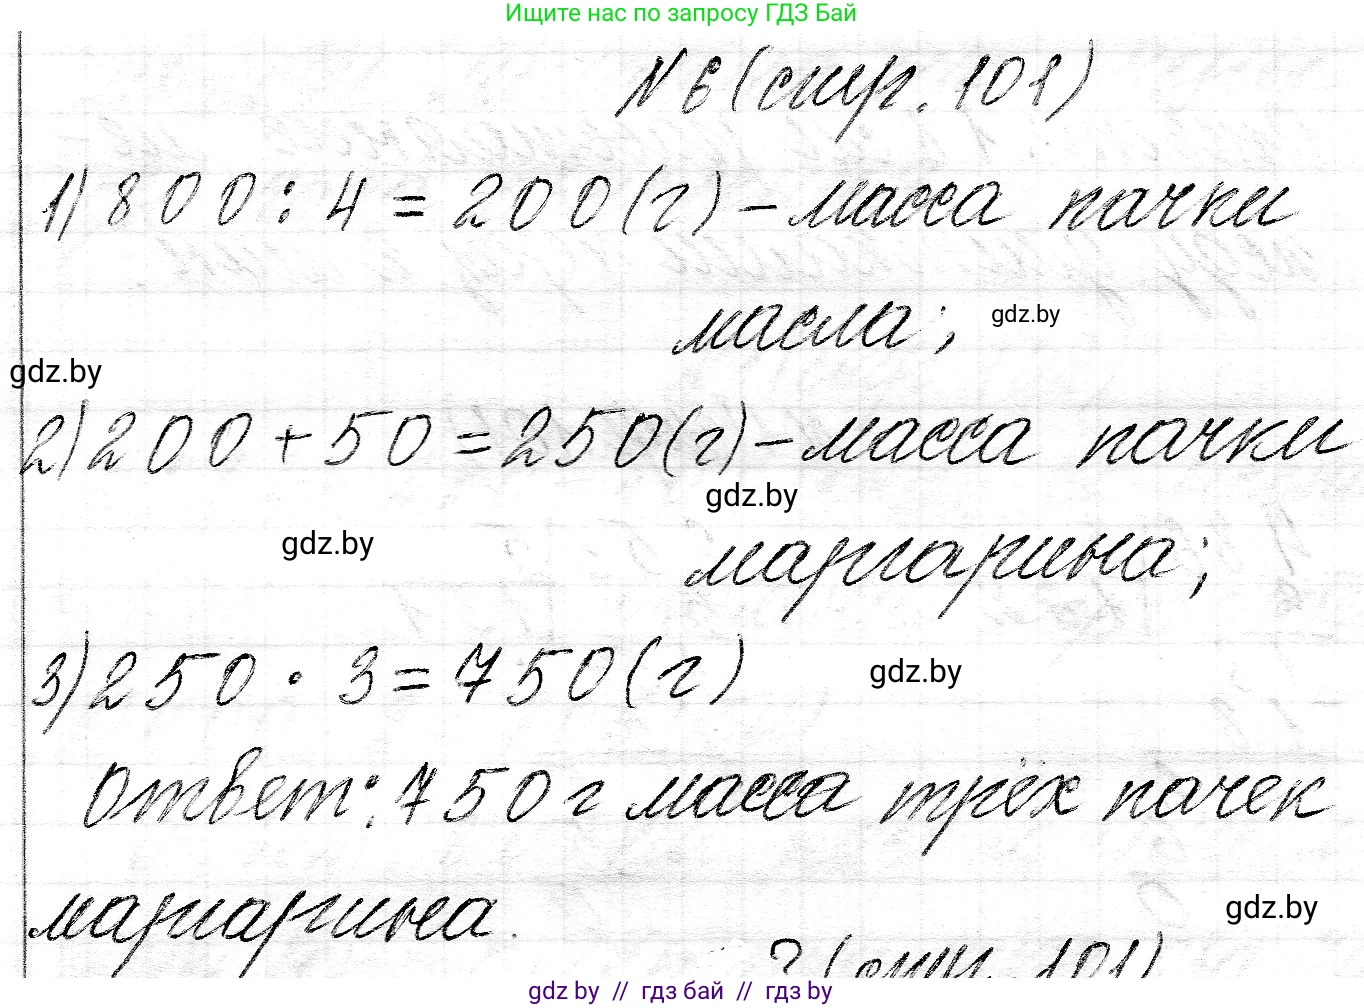 Ищите нас по запросу ГДЗ Бай
№ 6 (стр. 101)
1) 800 : 4 = 200 (г) – масса пачки
масла;
gdz.by
gdz.by
2) 200 + 50 = 250 (г) – масса пачки
gdz.by
gdz.by
маргарина;
3) 250 · 3 = 750 (г)
gdz.by
Ответ: 750 г масса трёх пачек
маргарина.
gdz.by
(стр. 101)
gdz by // гдз бай // гдз by